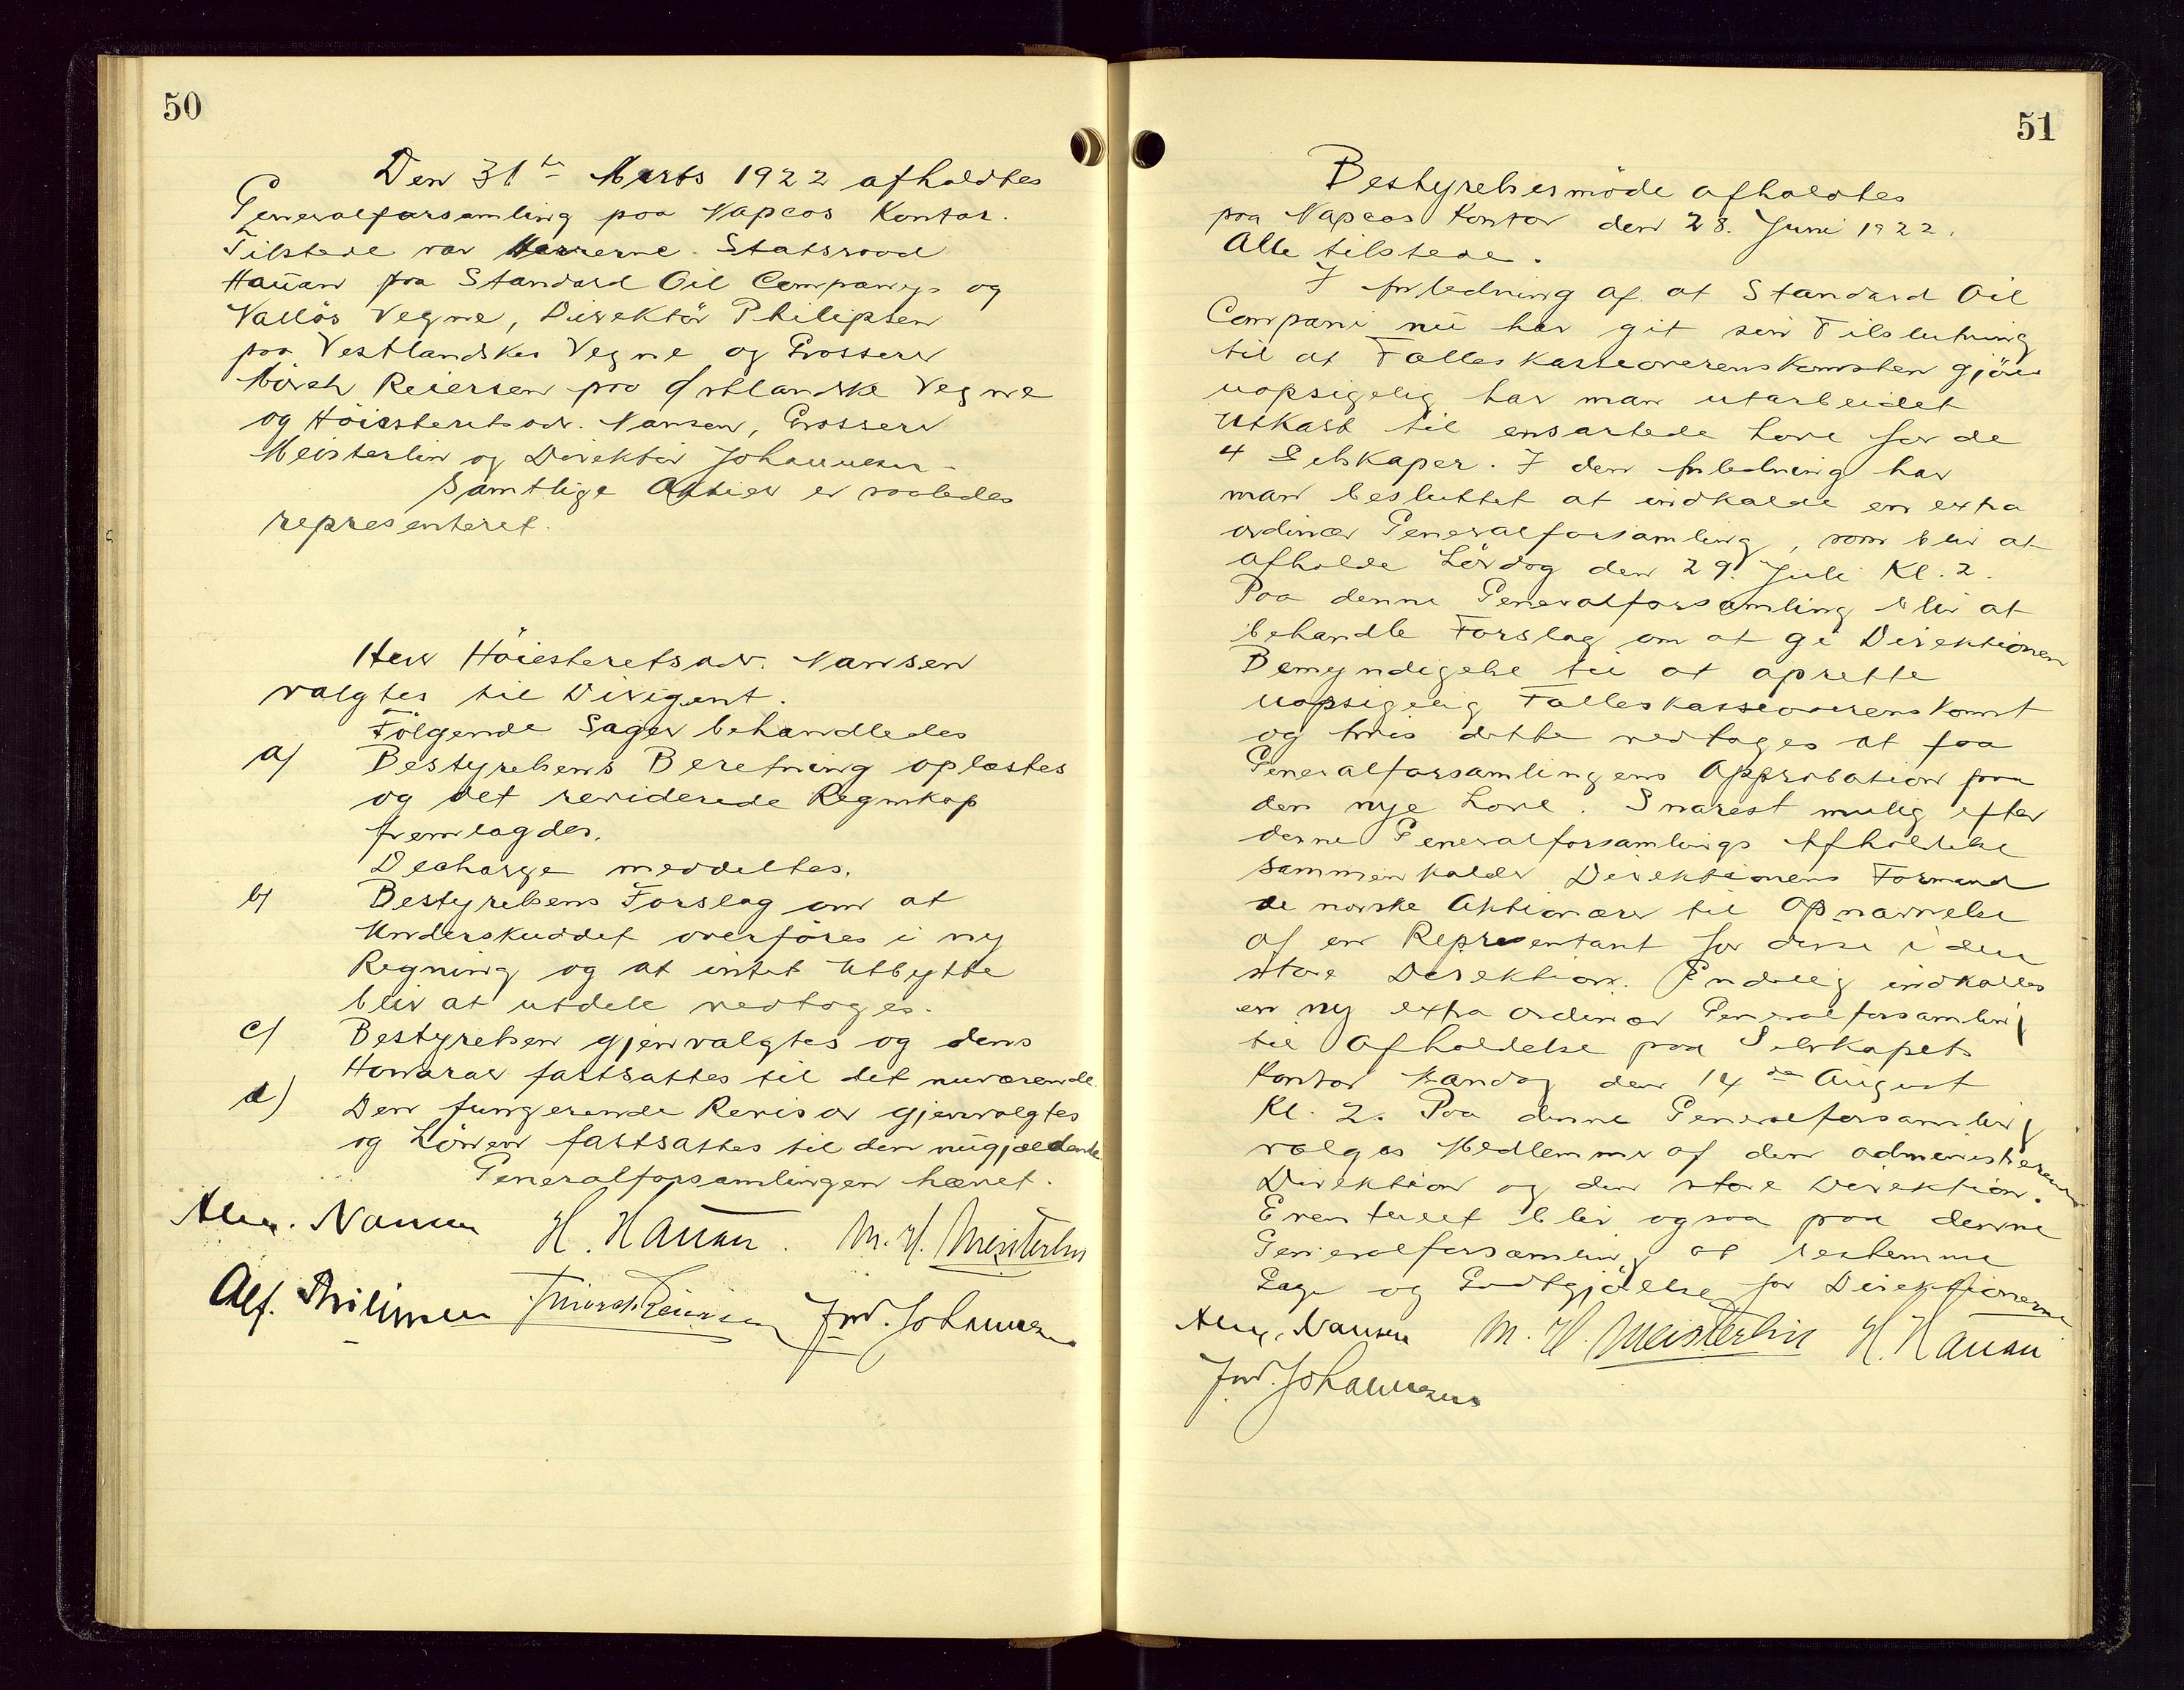 50
Den 31te Marts 1922 afholdtes
Generalforsamling paa Napcos Kontor.
Tilstede var Herrerne Statsraad
Hauan paa Standard Oil Companys og
Vallös Vegne, Direktör Philipsen
paa Vestlandskes Vegne og Grosserer
Mörch Reiersen paa Östlandske Vegne
og Höiesteretsadv. Nansen, Grosserer
Meisterlin og Direktör Johannesen.
Samtlige Aktier er saaledes
representeret.
Herr Höiesteretsadv. Nansen
valgtes til Dirigent.
Fölgende Sager behandledes
a) Bestyrelsens Beretning oplæstes
og det reviderede Regnskap
fremlagdes.
Decharge meddeltes.
b) Bestyrelsens Forslag om at
Underskuddet overföres i ny
Regning og at intet Utbytte
blir at utdele vedtoges.
c) Bestyrelsen gjenvalgtes og dens
Honorar fastsattes til det nuværende.
d) Den fungerende Revisor gjenvalgtes
og Lönnen fastsattes til den nugjældende.
Generalforsamlingen hævet.
Alex. Nansen H. Hauan. M. H. Meisterlin
Alf. Philipsen Mörch Reiersen Fred. Johannesen
51
Bestyrelsesmöde afholdtes
paa Napcos Kontor den 28. Juni 1922.
Alle tilstede.
I Anledning af at Standard Oil
Compani nu har git sin Tilslutning
til at Fælleskasseoverenskomsten gjöres
uopsigelig har man utarbeidet
Utkast til ensartede Love for de
4 Selskaper. I den Anledning har
man besluttet at indkalde en extra
ordinær Generalforsamling, som blir at
afholde Lördag den 29. Juli Kl. 2.
Paa denne Generalforsamling blir at
behandle Forslag om at gi Direktionen
Bemyndigelse til at oprette
uopsigelig Fælleskasseoverenskomst
og hvis dette vedtages at faa
Generalforsamlingens Approbation paa
den nye Love. Snarest mulig efter
denne Generalforsamlings Afholdelse
sammenkalder Direktionens Formand
de norske Aktionærer til Opnævnelse
af en Representant for disse i den
store Direktion. Endelig indkalles
en ny extra ordinær Generalforsamling
til Afholdelse paa Selskapets
Kontor Mandag den 14de August
Kl. 2. Paa denne Generalforsamling
vælges Medlemmer af den administrerende
Direktion og den store Direktion.
Eventuelt blir ogsaa paa denne
Generalforsamling at bestemme
Gage og Godtgjörelse for Direktionerne
Alex. Nansen M. H. Meisterlin H. Hauan
Fred. Johannesen